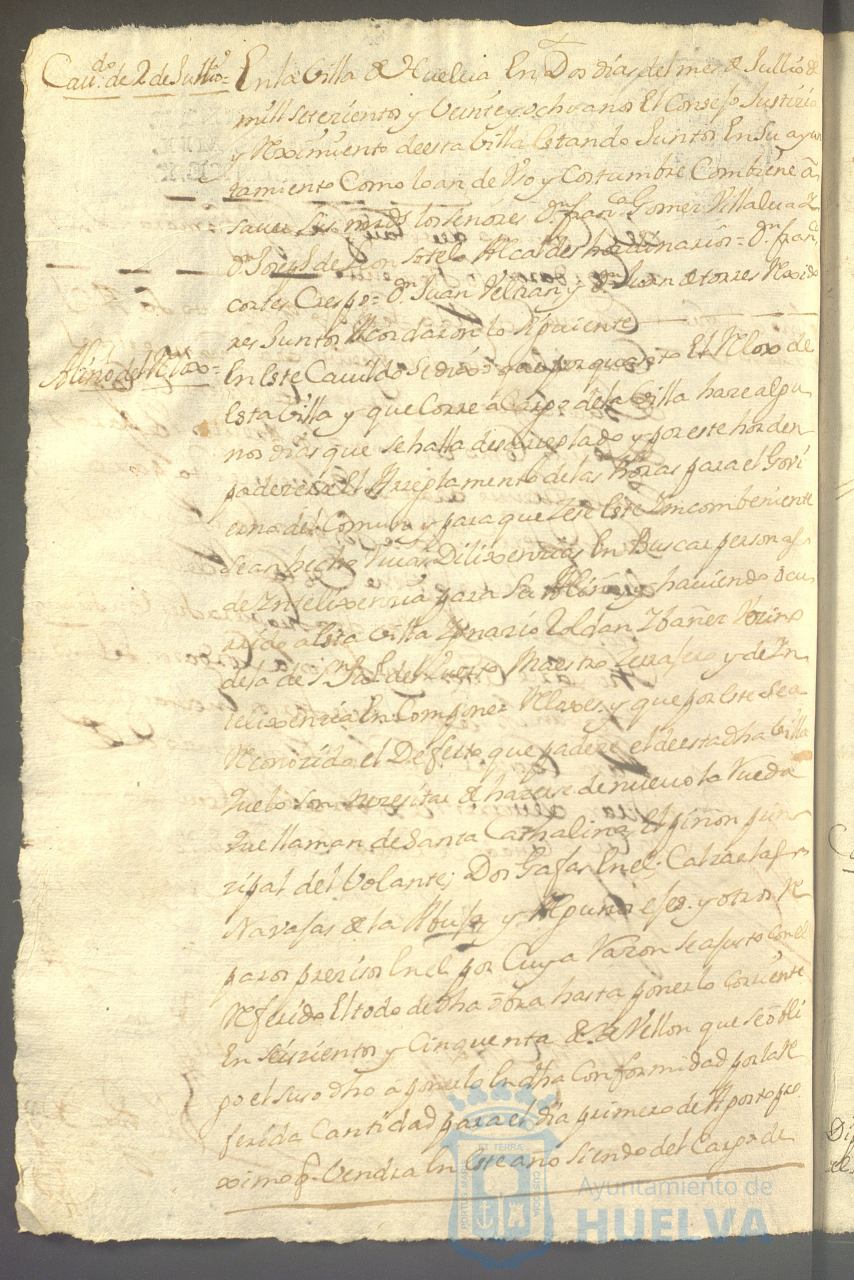 Cavdo. de 2 de Jullio =
En la Villa de Huelva En Dos dias del mes de Jullio de
mill setezientos y Veinte y ocho anos El Consejo Justizia
y Reximiento de esta Villa estando Juntos En su ayun
tamiento Como lo an de Uso y Costumbre Combiene â
saver los señores Dn. franco. Gomez Villalva
Dn. Joseph de Leon sotelo Alcaldes hordinarios = Dn. fran
cortes Crespo = Dn. Juan Veltran y Dn. Juan de torres Rexido
res Juntos Acordaron lo siguiente
Aliño del Relox =
En este Cavildo se dixo que por quanto El Relox de
esta Villa y que Corre a Cargo de la Villa haze algu
nos dias que se halla desarreglado y por este horden
padeze El Arreglamento de las horas para el Govi
erno del Comun y para que Zese este Incombeniente
se an hecho Vivas Dilixenzias En Buscar personas
de Intelixenzia para su Aliño y haviendo ocu
rrido a esta Villa Roldan Ybañez Vezino
de la de Sn. Jual del Puerto Maestro Zerrajero y de In
telixenzia En Componer Relоxes y que por este sea
Reconozido el Defecto que padeze el de esta dha Villa
que lo son nezesitar de hazerse de nuevo la Rueda
que llaman de Santa Cathalina El piñon prin
zipal del Volante; Dos Gafas En el
Navajas de la y Algunos exes y otros Re
paros prezisos En el por Cuya Razon se ajusto con el
Referido El todo de dha obra hasta ponerlo Corriente
En seiszientos y Cinquenta Rs. de Vellon que se obli
go el suso dho a ponerlo En dha Conformidad por la Re
ferida Cantidad para el dia primero de Agosto pro
ximo q. Vendra en este año siendo del Cargo de
Ayuntamiento de
HUELVA